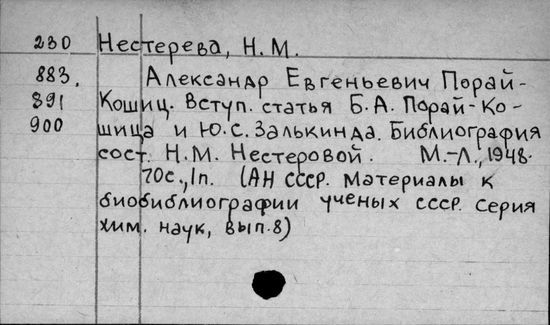 230 Нестерева, Н.М.
883, Александр Евгеньевич Порай-
891 Кошиц. Вступ. статья Б.А. Порай-Ко-
900 шица и Ю.С. Залькинда. Библиография
сост. Н.М. Нестеровой. М.-Л., 1948.
70с., 1п. (АН СССР. Материалы к
биобиблиографии ученых СССР. Серия
хим. наук, вып.8)